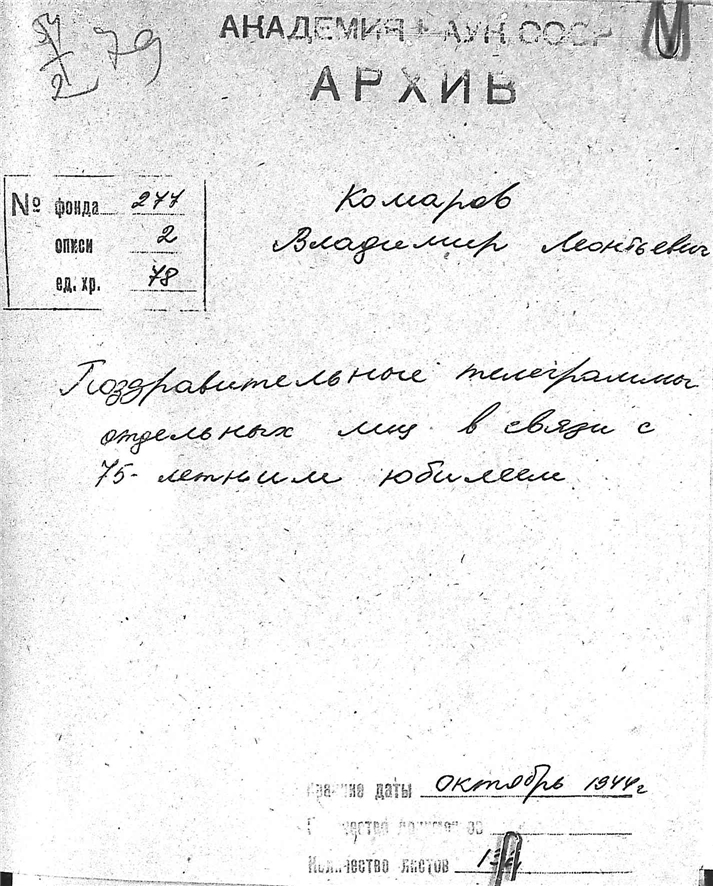 79
АКАДЕМИЯ НАУК СССР
АРХИВ
№ фонда 277
описи 2
ед. хр. 78
Комаров
Владимир Леонтьевич
Поздравительные телеграммы
отдельных лиц в связи с
75-летним юбилеем
Крайние даты октябрь 1944г
Количество листов